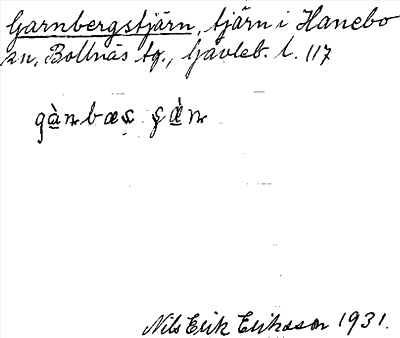 Garnbergstjärn, tjärn i Hanebo
sn, Bollnäs tg., Gävleb. l. 117
Nils Erik Eriksson 1931.